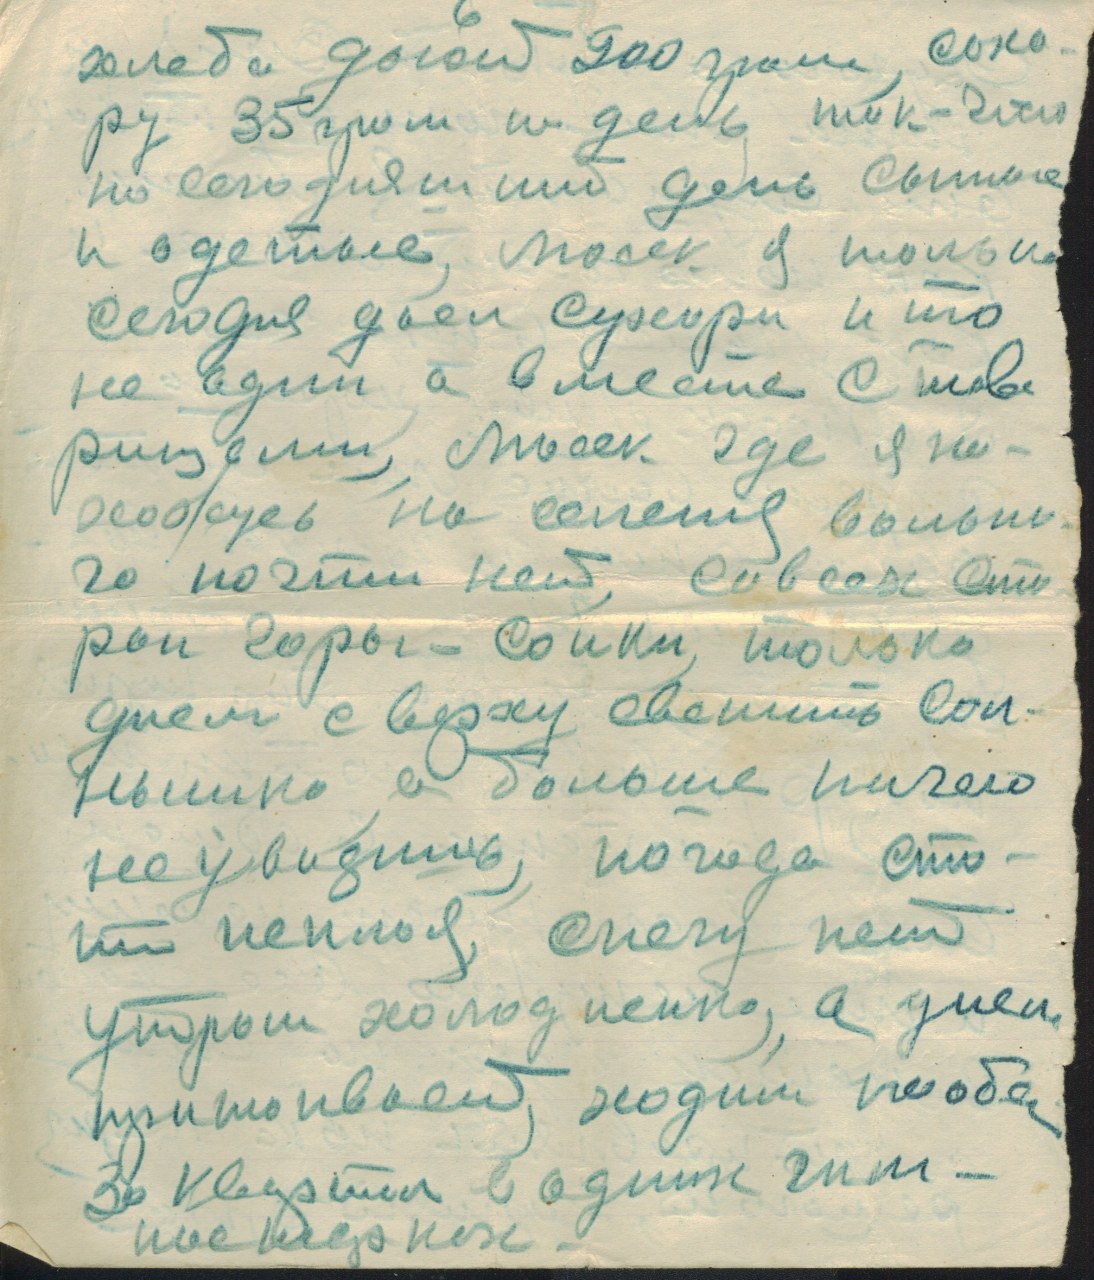 6
хлеба дают 900 грам, соха-
ру 35 грам на день, так-что
на сегодняшний день сытые
и одетые, Люсек я только
сегодня доел сухари и то
не один а вместе с това
рищами, Люсек где я на-
хожусь на селения вольно-
го почти нет, со всех сто
рон горы - сопки, только
днем с верху светить сол-
нышко, а больше ничего
не увидишь, погода сто-
ит теплая, снегу нет
утром холодненко, а днем
притаивает, ходим
За квартал в одних гим-
настерках -